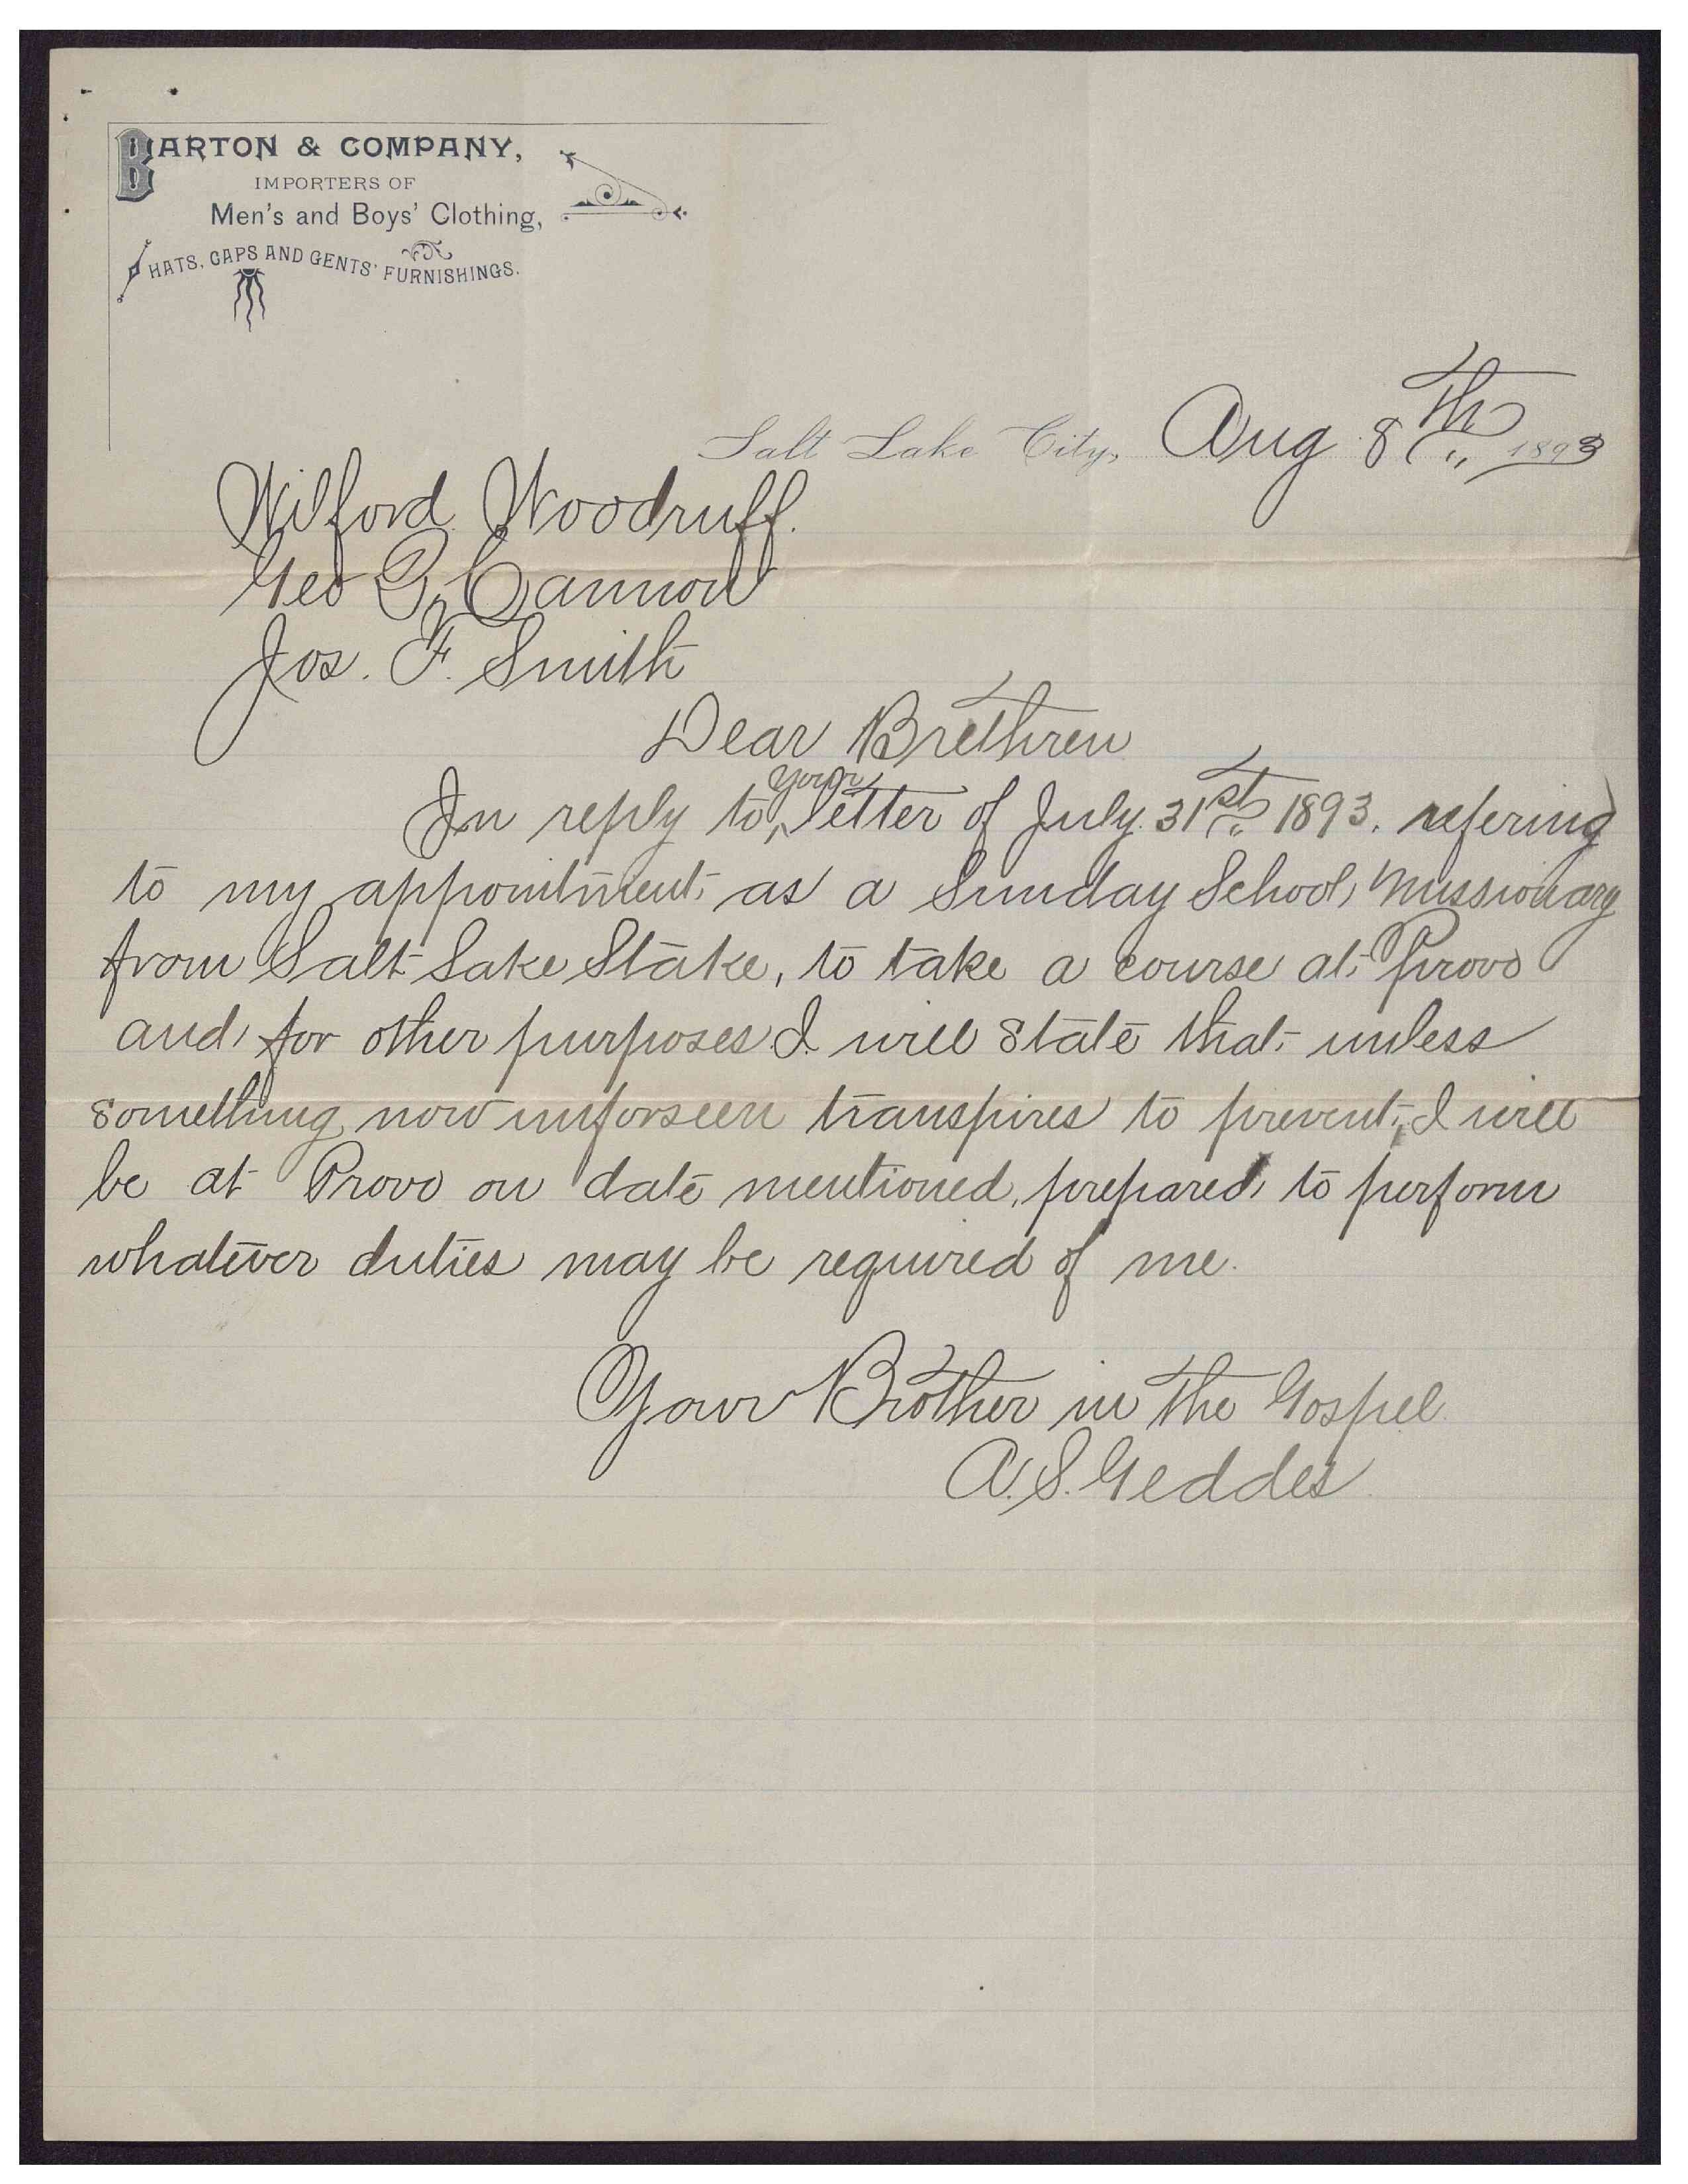 BARTON & COMPANY,
IMPORTERS OF
Men's and Boys' Clothing,
HATS, CAPS AND GENTS' FURNISHINGS.
Salt Lake City, Aug 8th 1893
Wilford Woodruff.
Geo Q. Cannon
Jos. F. Smith
Dear Brethren
your
In reply to letter of July 31st 1893. refering
to my appointment as a Sunday School Missionary
from Salt Lake Stake, to take a course at Provo
and for other purposes I will state that unless
something now unforseen transpires to prevent, I will
be at Provo on date mentioned, prepared to perform
whatever duties may be required of me.
Your Brother in the Gospel
A. S. Geddes